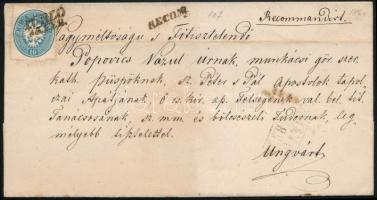 RECOM.
Recommandirt.
Nagyméltóságu s Főtisztelendő
Popovics Vazul úrnak, munkácsi gör. szer.
kath. püspöknek, Sz. Péter s Pál Apostolok tapol
czai Apátjának, cs. kir. ap. Felségének val. bel. tit.
Tanácsosának, Sz. mm. és bölcsészeti Tudornak, leg
mélyebb tisztelettel.
Ungvárt